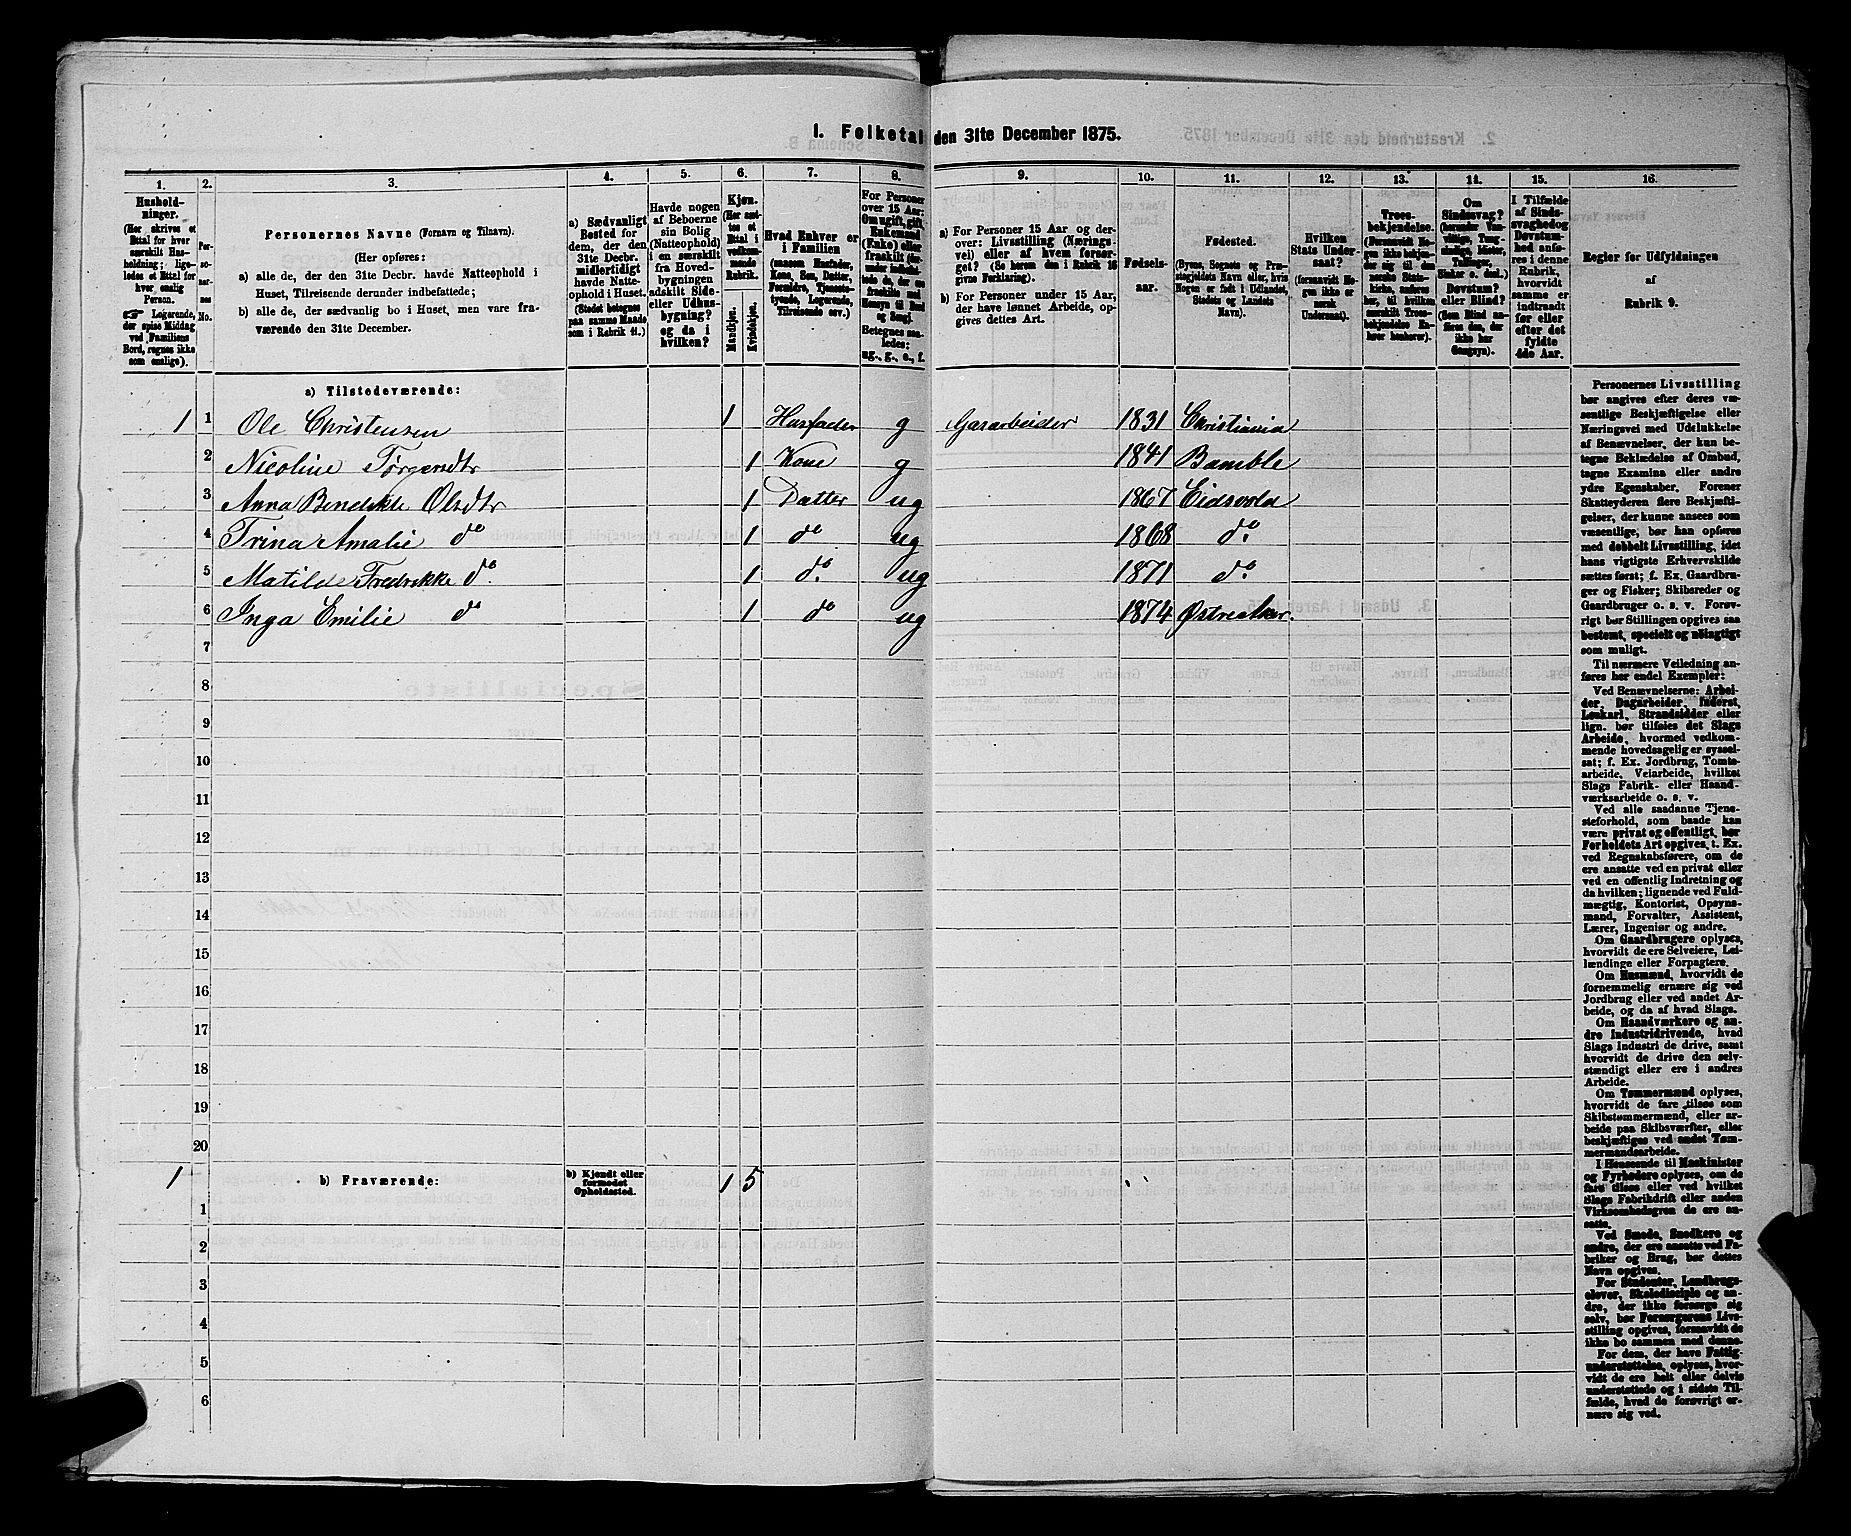 1. Folketal den 31te December 1875.
1.
Hushold-
ninger.
(Her skrives et
Ettal for hver
særskilt Hus-
holdning; lige-
ledes et Ettal for
hver, enslig
Person.
☛ Logerende,
der spise Middag
ved Familiens
Bord, regnes ikke
som enslige).
2.
Per-
so-
ner-
nes
No.
3.
Personernes Navne (Fornavn og Tilnavn).
(Her opføres:
a) alle de, der den 31te Decbr. havde Natteophold i
Huset, Tilreisende derunder indbefattede;
b) alle de, der sædvanlig bo i Huset, men vare fra-
værende den 31te December.
4.
a) Sædvanligt
Bosted for
dem, der den
31te Decbr.
midlertidigt
havde Natte-
ophold i Huset.
(Stedet betegnes
paa samme Maade
som i Rubrik 11.)
5.
Havde nogen
af Beboerne
sin Bolig
(Natteophold)
i en særskilt
fra Hoved-
bygningen
adskilt Side-
eller Udhus-
bygning?
og da i
hvilken?
6.
Kjøn.
(Her sæt-
tes et
Ettal i
vedkom-
mende
Rubrik.
Mandkjøn.
Kvindekjøn.
7.
Hvad Enhver er
i Familien
(saasom Husfader,
Kone, Søn, Datter,
Forældre, Tjeneste-
tyende, Logerende,
Tilreisende osv.)
8.
For Personer
over 15 Aar:
Om ugift, gift,
Enkemand
(Enke) eller
fraskilt
Betegnes saa-
ledes:
ug., g., e., f.
9.
a) For Personer 15 Aar og der-
over: Livsstilling (Nærings-
vei) eller af hvem forsør-
get? (Se herom den i Rubrik 16
givne Forklaring).
b) For Personer under 15 Aar,
der have lønnet Arbeide, op-
gives dettes Art.
10.
Fødsels-
aar.
11.
Fødested.
(Byens, Sognets og Præ-
stegjeldets Navn eller, hvis
Nogen er født i Udlandet,
Stedets og Landets
Navn).
12.
Hvilken
Stats Under-
saat?
(forsaavidt No-
gen ikke er
norsk
Undersaat).
13.
Troes-
bekjendelse.
14.
Om
Sindssvag?
Døvstum?
eller Blind?
15.
I Tilfælde
af Sinds-
svaghed og
Døvstum-
hed anfø-
res i denne
Rubrik,
hvorvidt
samme er
indtraadt
før eller
efter det
fyldte
4de Aar.
16.
Regler for Udfyldningen
af
Rubrik 9.
a) Tilstedeværende:
1 1 Ole Christensen 1 Husfader g Gasarbeider 1831 Christiania
2 Nicoline Törgersdtr 1 Kone g 1841 Bamble
3 Anna Benedikte Olsdtr 1 Datter ug 1867 Eidsvold
4 Trina Amalie do 1 do ug 1868 do
5 Matilde Fredrikke do 1 do ug 1871 do
6 Inga Emilie do 1 do ug 1874 Østreaker.
7
8
9
10
11
12
13
14
15
16
17
18
19
20
1 b) Fraværende: b) Kjendt eller
formodet
Opholdssted. 1 5
1
2
3
4
5
6
Personernes Livsstilling
bør angives efter deres væ-
sentlige Beskjæftigelse eller
Næringsvei med Udelukkelse
af Benævnelser, der kun be-
tegne Beklædelse af Ombud,
tagne Examina eller andre
ydre Egenskaber. Forener
Skatteyderen flere Beskjæfti-
gelser, der kunne ansees som
væsentlige, bør han opføres
med dobbelt Livsstilling, idet
hans vigtigste Erhvervskilde
sættes først; f. Ex. Gaardbru-
ger og Fisker; Skibsreder og
Gaardbruger o. s. v. Forøv-
rigt bør Stillingen opgives saa
bestemt, specielt og nøiagtigt
som muligt.
Til nærmere Veiledning an-
føres her endel Exempler:
Ved Benævnelserne: Arbei-
der, Dagarbeider, Inderst,
Løskarl, Strandsidder eller
lign. bør tilføies det Slags
Arbeide, hvormed vedkom-
mende hovedsagelig er syssel-
sat; f. Ex. Jordbrug, Tomte-
arbeide, Veiarbeide, hvilket
Slags Fabrik- eller Haand-
værksarbeide o. s. v.
Ved alle saadanne Tjene-
steforhold, som baade kan
være privat og offentligt, bør
Forholdets Art opgives, t. Ex.
ved Regnskabsførere, om de
ere ansatte ved en privat eller
ved en offentlig Indretning og
da hvilken; lignende ved Fuld-
mægtig, Kontorist, Opsyns-
mand, Forvalter, Assistent,
Lærer, Ingeniør og andre.
Om Gaardbrugere oplyses,
hvorvidt de ere Selveiere, Lei-
lændinge eller Forpagtere.
Om Husmænd, hvorvidt de
fornemmelig ernære sig ved
Jordbrug eller ved andet Ar-
beide, og da af hvad Slags.
Om Haandværkere og an-
dre Industridrivende, hvad
Slags Industri de drive, samt
hvorvidt de drive den selv-
stændigt eller ere i andres
Arbeide.
Om Tømmermænd oplyses,
hvorvidt de fare tilsøs som
Skibstømmermænd, eller ar-
beide paa Skibsværfter, eller
beskjæftiges ved andet Tøm-
mermandsarbeide.
I Henseende til Maskinister
og Fyrbødere oplyses, om de
fare tilsøs eller ved hvilket
Slags Fabrikdrift eller anden
Virksomhedsgren de ere an-
satte.
Ved Smede, Snedkere og
andre, der ere ansatte ved Fa-
briker og Brug, bør dettes
Navn opgives.
For Studenter, Landbrugs-
elever, Skoledisciple og an-
dre, der ikke forsørge sig
selv, bør Forsørgerens Livs-
stilling opgives, forsaavidt de
ikke bo sammen med denne.
For dem, der have Fattig-
understøttelse, oplyses, hvor-
vidt de ere helt eller delvis
understøttede og i sidste Til-
fælde, hvad de forøvrigt er-
nære sig ved.